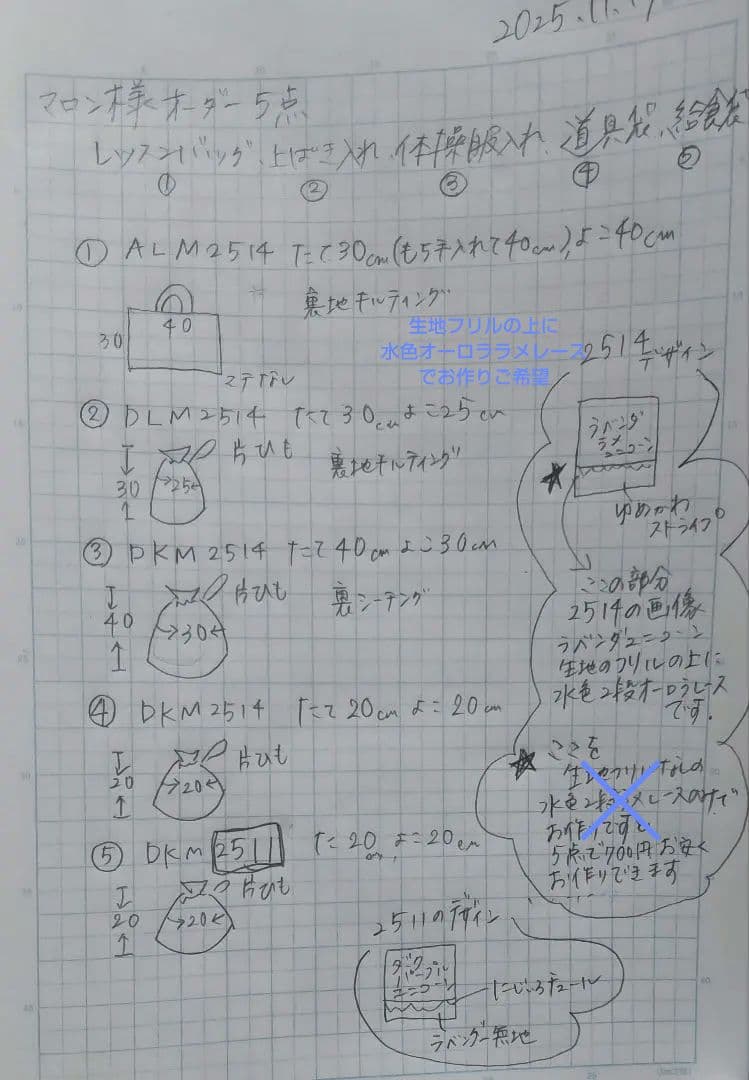 2025.11.17
マロン様 オーダー5点
レッスンバッグ、上ばき入れ、体操服入れ、道具袋、給食袋
① ② ③ ④ ⑤
① ALM2514 たて30cm(もち手入れて40cm)、よこ40cm
裏地キルティング
40
30
マチなし
生地フリルの上に
水色オーロララメレース
でお作りご希望
② DLM2514 たて30cm よこ25cm
片ひも
裏地キルティング
30
25
③ DKM2514 たて40cm よこ30cm
片ひも
裏シーチング
40
30
④ DKM2514 たて20cm よこ20cm
片ひも
20
20
⑤ DKM2511 た20cm、よこ20cm
片ひも
20
20
2514デザイン
ラベンダ
ラメ
ユニコーン
★
ゆめかわ
ストライプ
ここの部分
2514の画像
ラベンダユニコーン
生地のフリルの上に
水色2段オーロラレース
です.
★ ここを
生地フリルなしの
水色2段ラメレースのみで
お作りですと
5点で700円お安く
お作りできます
2511のデザイン
ダク
パープル
ユニコーン
にじいろチュール
ラベンダー無地